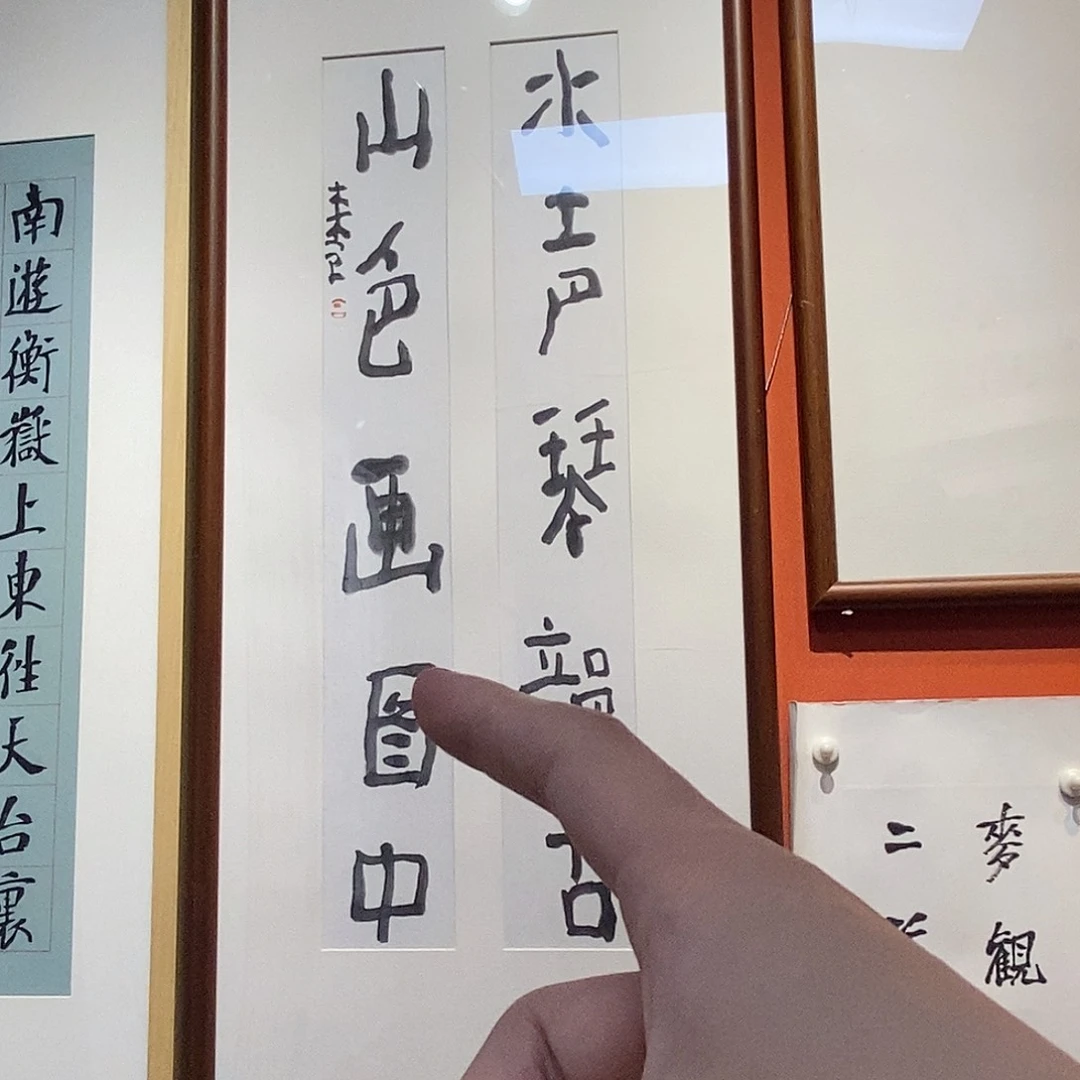 麥観
二
水声琴韻古
山色画图中
南遊衡嶽上東徃天台裏